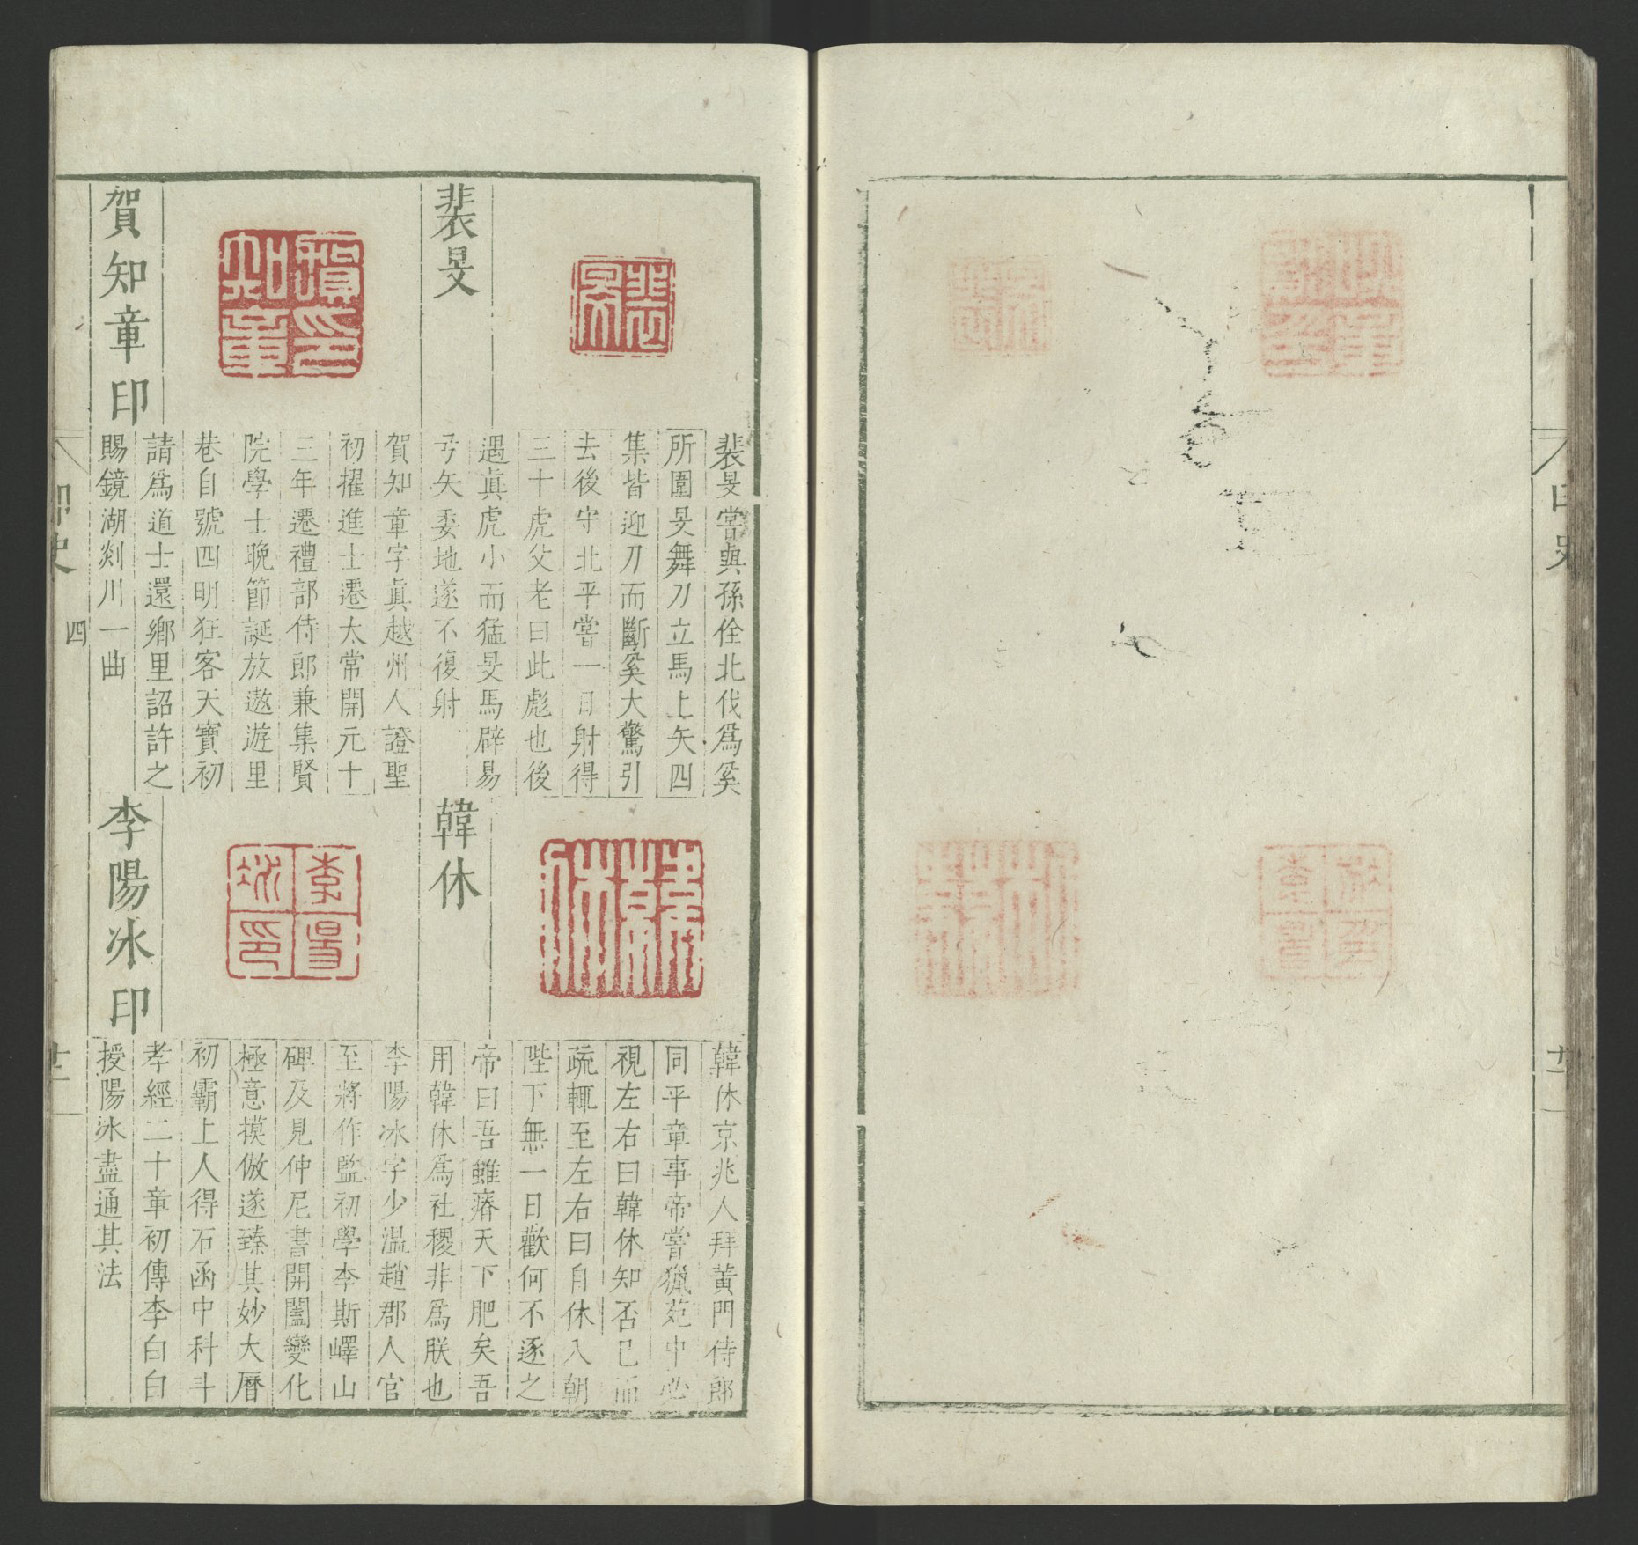 裴旻
裴旻嘗與孫佺北伐爲奚
所圍旻舞刀立馬上矢四
集皆迎刀而斷奚大驚引
去後守北平嘗一日射得
三十虎父老曰此彪也後
遇眞虎小而猛旻馬辟易
弓矢委地遂不復射
賀知章印
賀知章字眞越州人證聖
初擢進士遷太常開元十
三年遷禮部侍郎兼集賢
院學士晚節誕放遨遊里
巷自號四明狂客天寶初
請爲道士還鄉里詔許之
賜鏡湖剡川一曲
韓休
韓休京兆人拜黃門侍郎
同平章事帝嘗獵苑中必
視左右曰韓休知否已而
疏輒至左右曰自休入朝
陛下無一日歡何不逐之
帝曰吾雖瘠天下肥矣吾
用韓休爲社稷非爲朕也
李陽冰印
李陽冰字少溫趙郡人官
至將作監初學李斯嶧山
碑及見仲尼書開闔變化
極意摸倣遂臻其妙大曆
初霸上人得石函中科斗
孝經二十章初傳李白白
授陽冰盡通其法
印史
四